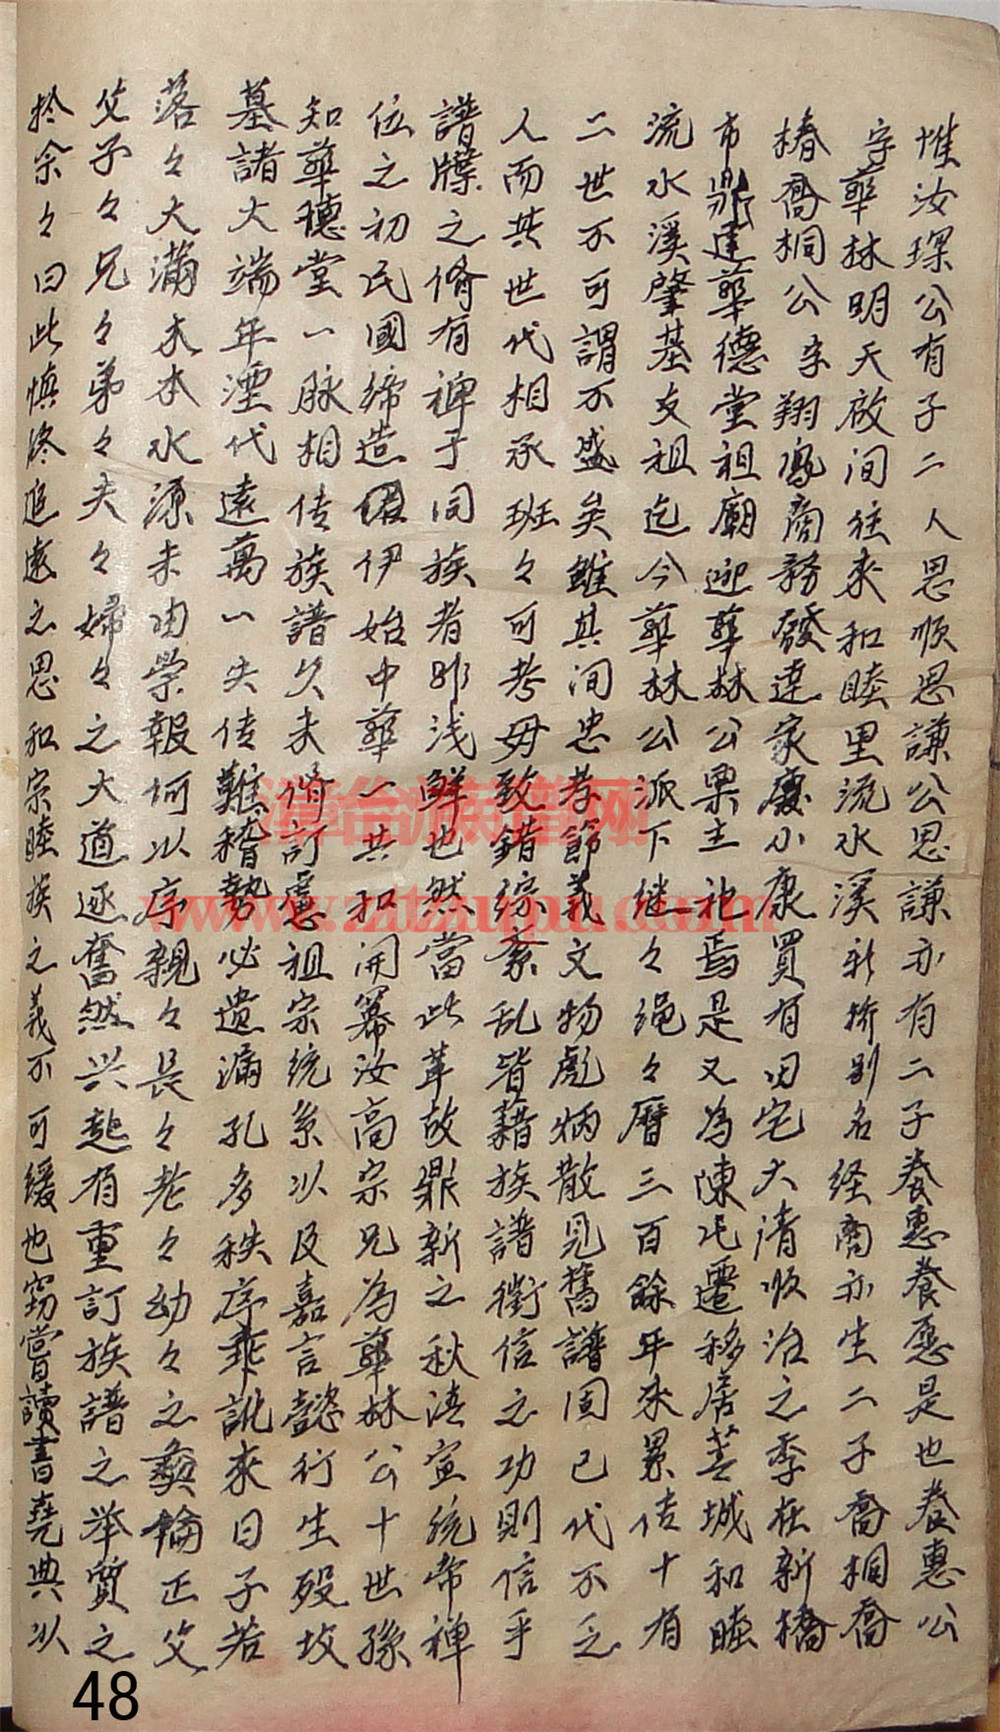 惟汝琛公有子二人思順思謙公思謙亦有二子養惠養愿是也養惠公
字華林明天啟间往來和睦里流水溪新桥别名经商亦生二子喬桐喬
椿喬桐公字翔鳳商務發達家慶小康買有田宅大清順治之季在新橋
市鼎建華德堂祖廟迎華林公栗主祀焉是又為陳氏遷移居薌城和睦
流水溪肇基支祖迄今華林公派下继々绳々曆三百餘年來累传十有
二世不可謂不盛矣雖其间忠孝節義文物彪炳散見舊譜固已代不乏
人而其世代相承班々可考毋致錯综紊乱皆藉族譜徵信之功則信乎
譜牒之脩有禆于同族者非浅鲜也然當此革故鼎新之秋清宣统帝禅
位之初民國缔造伊始中華一共和開幕汝高宗兄為華林公十世孫
知華穗堂一脉相传族譜久未脩訂慮祖宗统系以及嘉言懿行生殁坟
墓諸大端年湮代遠萬一失传難稽勢必遗漏孔多秩序乖訛來日子若
落々大滿木本水源未由崇報何以序親々長々老々幼々之彝倫正父
父子々兄々弟々夫々婦々之大道逐奮然兴起有重訂族譜之举質之
扵余々曰此慎终追遠之思和宗睦族之義不可缓也窃嘗讀書堯典以
48
漳台族譜网
www.ztzupu.com